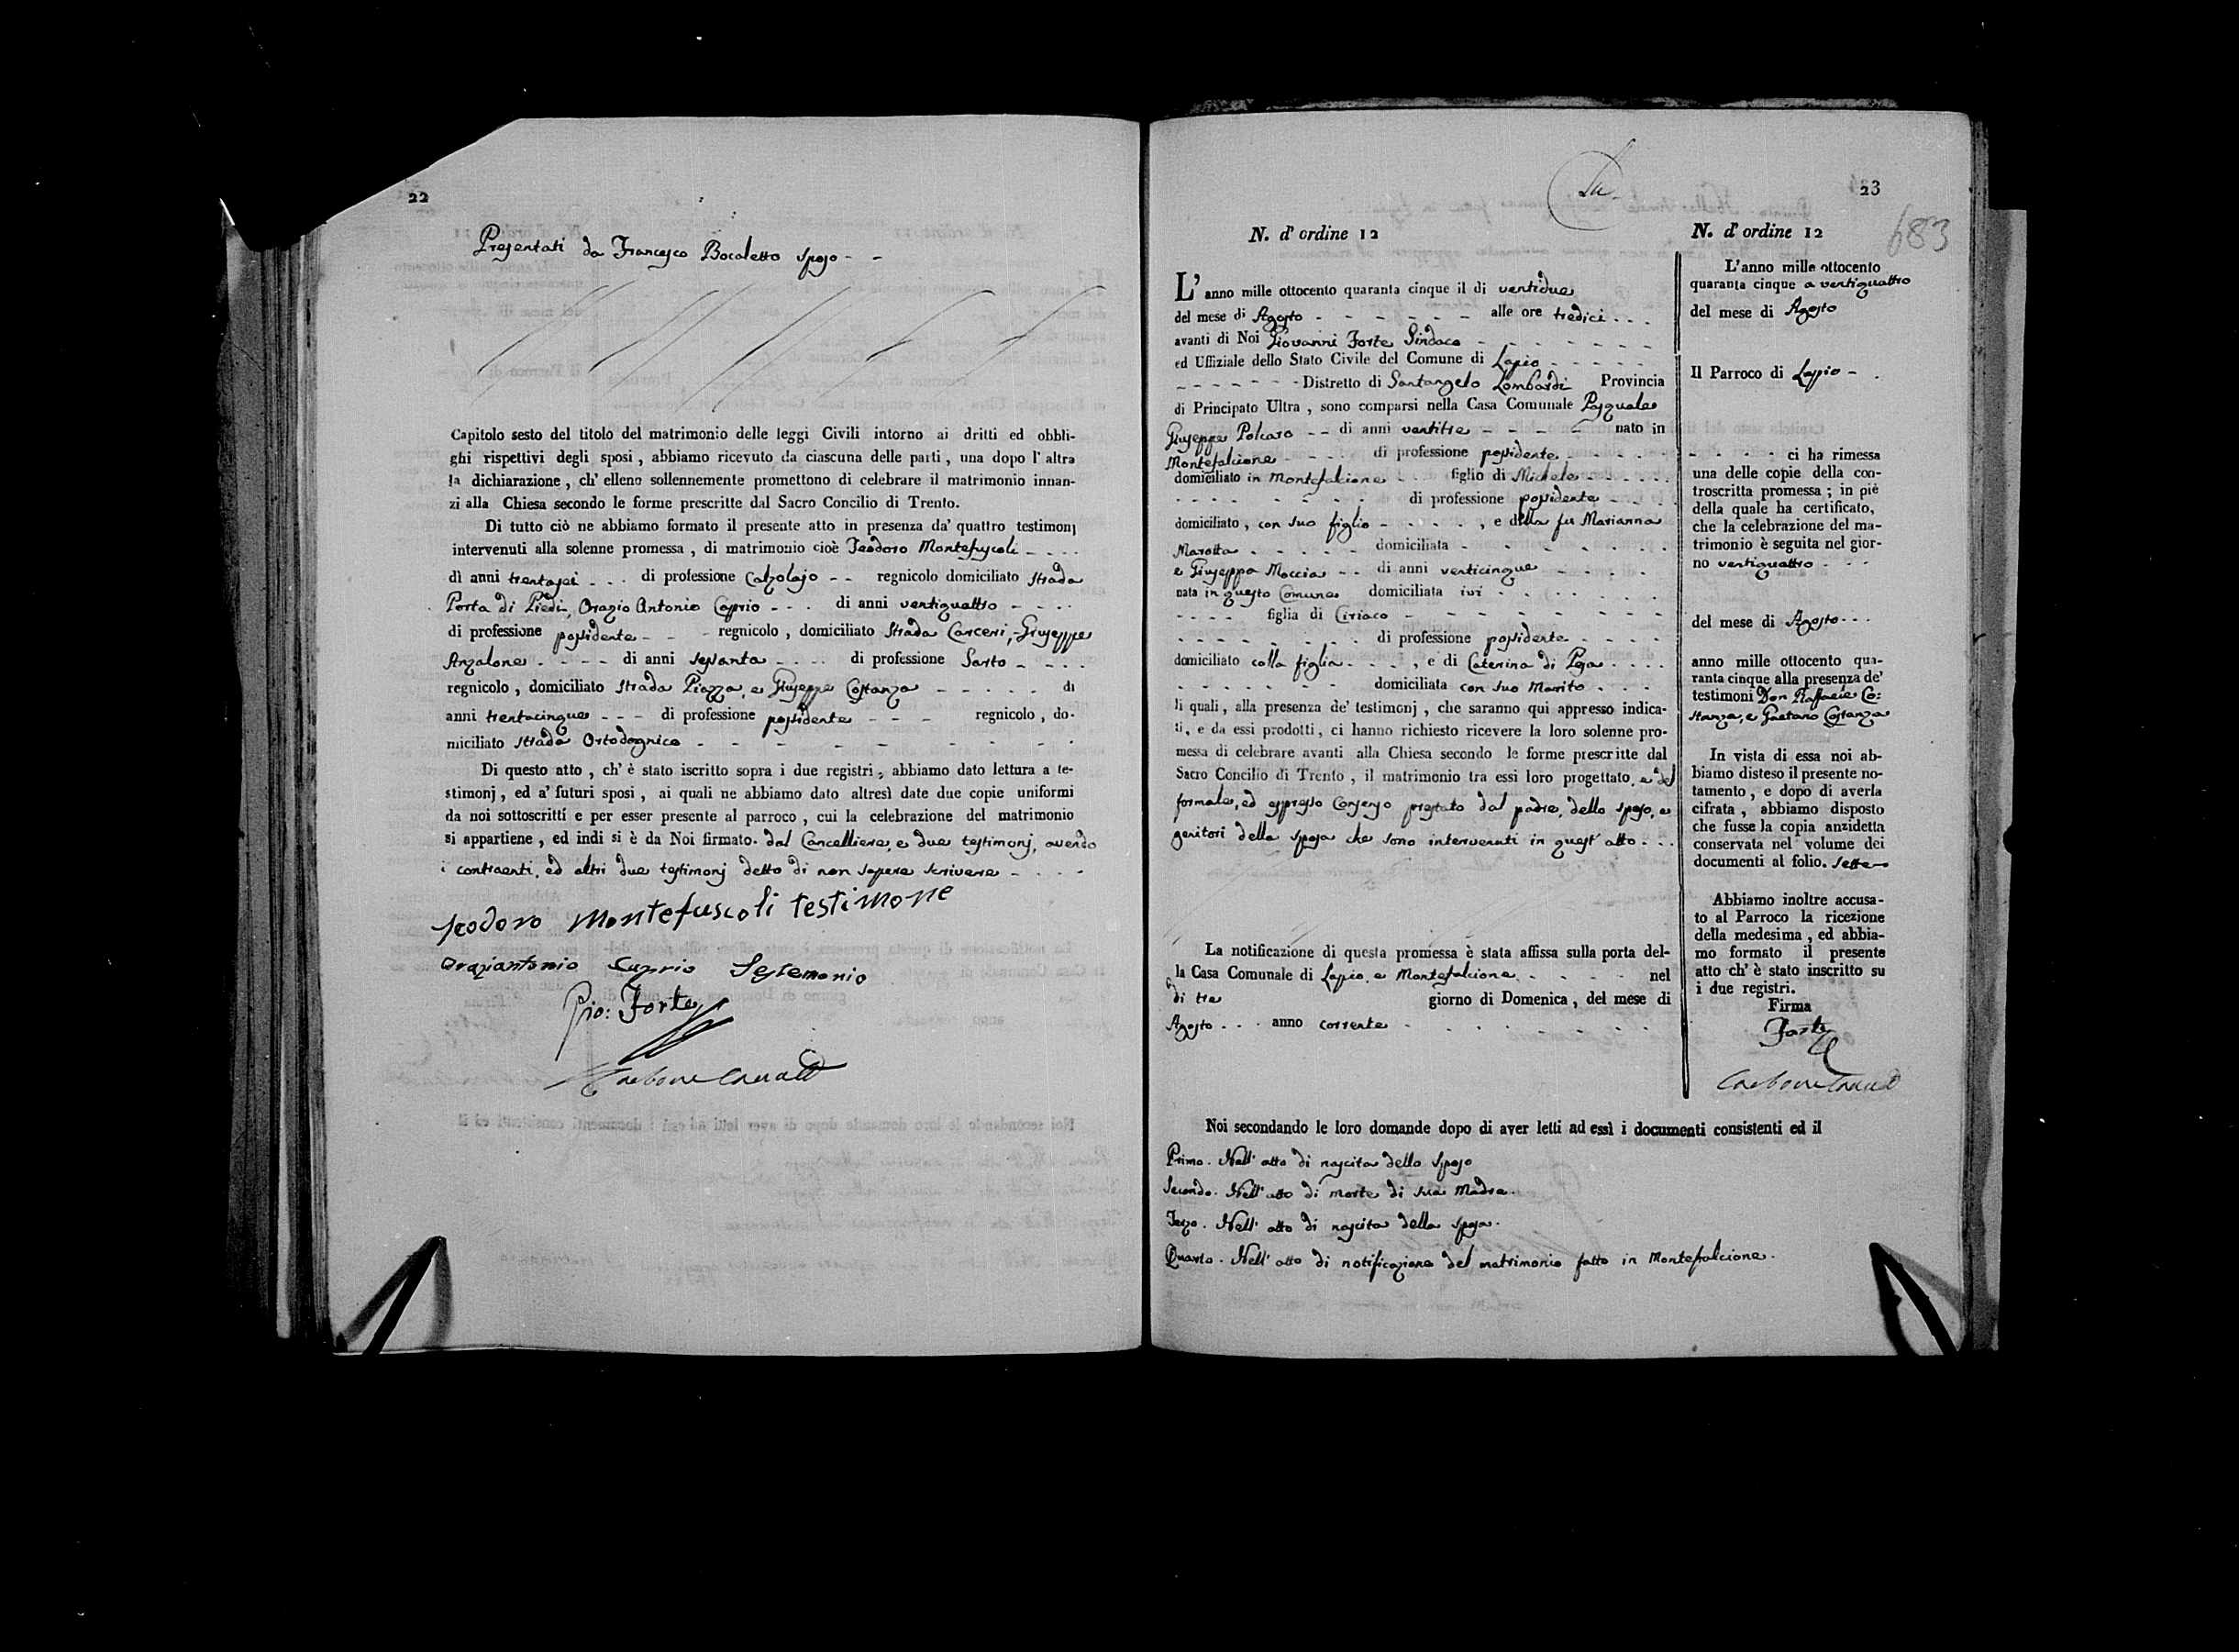 22
Presentati da Francesco Bocaletto sposo - -
Capitolo sesto del titolo del matrimonio delle leggi Civili intorno ai dritti ed obbli-
ghi rispettivi degli sposi , abbiamo ricevuto da ciascuna delle parti , una dopo l' altra
la dichiarazione , ch' elleno sollennemente promettono di celebrare il matrimonio innan-
zi alla Chiesa secondo le forme prescritte dal Sacro Concilio di Trento.
Di tutto ciò ne abbiamo formato il presente atto in presenza da' quattro testimonj
intervenuti alla solenne promessa , di matrimonio cioè Teodoro Montefuscoli - - - -
di anni trentasei - - - di professione Calzolajo - - regnicolo domiciliato Strada
Porta di Piedi, Orazio Antonio Caprio - - - di anni ventiquattro - - - -
di professione possidente - - - regnicolo , domiciliato Strada Carceri, Giuseppe
Anzalone - - - - di anni sessanta - - - - di professione Sarto - - - -
regnicolo , domiciliato Strada Piazza, e Giuseppe Costanza - - - - - di
anni trentacinque - - - di professione possidente - - - regnicolo , do-
miciliato Strada Ortodognico - - - - - - - -
Di questo atto , ch' è stato iscritto sopra i due registri , abbiamo dato lettura a te-
stimonj , ed a' futuri sposi , ai quali ne abbiamo dato altresì date due copie uniformi
da noi sottoscritti e per esser presente al parroco , cui la celebrazione del matrimonio
si appartiene , ed indi si è da Noi firmato. dal Cancelliere, e due testimonj, avendo
i contraenti, ed altri due testimonj detto di non sapere scrivere - - - -
Teodoro Montefuscoli testimone
Oraziantonio Caprio Testemonio
Gio: Forte
Carbone
23
683
N. d' ordine 12
L' anno mille ottocento quaranta cinque il di ventidue
del mese di Agosto - - - - - - - alle ore tredici . . .
avanti di Noi Giovanni Forte Sindaco - - - - - - -
ed Uffiziale dello Stato Civile del Comune di Lapio - - - - -
- - - - - - - Distretto di Santangelo Lombardi Provincia
di Principato Ultra , sono comparsi nella Casa Comunale Pasquale
Giuseppe Polcaro - - di anni ventitre - - - - nato in
Montefalcione - - - di professione possidente - - - -
domiciliato in Montefalcione - - figlio di Michele - - - - -
- - - - - - - di professione possidente - - -
domiciliato , con suo figlio - - - - - , e della fu Marianna
Marotta - - - - - domiciliata - - - - - - -
e Giuseppa Moccia - - di anni venticinque - - - -
nata in questo Comune domiciliata ivi - - - - - -
- - - - figlia di Ciriaco - - - - - - - - -
- - - - - - - - di professione possidente - - - -
domiciliato colla figlia - - - - , e di Caterina di Pesa - - - -
- - - - - - - domiciliata con suo Marito - - -
li quali , alla presenza de' testimonj , che saranno qui appresso indica-
ti, e da essi prodotti , ci hanno richiesto ricevere la loro solenne pro-
messa di celebrare avanti alla Chiesa secondo le forme prescritte dal
Sacro Concilio di Trento , il matrimonio tra essi loro progettato, e del
formale, ed espresso Consenso prestato dal padre, dello sposo, e
genitori della sposa che sono intervenuti in quest' atto . . .
La notificazione di questa promessa è stata affissa sulla porta del-
la Casa Comunale di Lapio, e Montefalcione - - - - nel
di tre giorno di Domenica , del mese di
Agosto . . . anno corrente - - - - - - -
N. d' ordine 12
L'anno mille ottocento
quaranta cinque a ventiquattro
del mese di Agosto
Il Parroco di Lapio - -
- - - - - ci ha rimessa
una delle copie della con-
troscritta promessa ; in piè
della quale ha certificato,
che la celebrazione del ma-
trimonio è seguita nel gior-
no ventiquattro - - -
del mese di Agosto - - -
anno mille ottocento qua-
ranta cinque alla presenza de'
testimoni Don Raffaele Co:
stanza, e Gaetano Costanza
In vista di essa noi ab-
biamo disteso il presente no-
tamento , e dopo di averla
cifrata , abbiamo disposto
che fusse la copia anzidetta
conservata nel volume dei
documenti al folio. sette
Abbiamo inoltre accusa-
to al Parroco la ricezione
della medesima , ed abbia-
mo formato il presente
atto ch' è stato inscritto su
i due registri.
Firma
Forte
Carbone
Noi secondando le loro domande dopo di aver letti ad essi i documenti consistenti ed il
Primo. Nell' atto di nascita dello sposo
Secondo. Nell' atto di morte di sua Madre.
Terzo. Nell' atto di nascita della sposa.
Quarto. Nell' atto di notificazione del matrimonio fatto in Montefalcione.